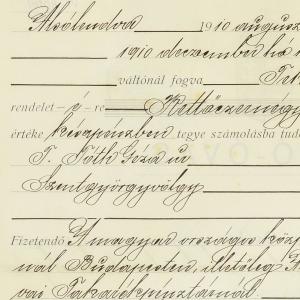 Alsólendva 1910 augusz
1910 deczember hó
váltónál fogva
rendelet – é – re Kettőezernégy
értéke készpénzben tegye számolásba tud
T. Tóth Géza úr
Szentgyörgyvölgy
Fizetendő A magyar országos közp
nál Budapesten, illetőleg
vai Takarékpénztárnál